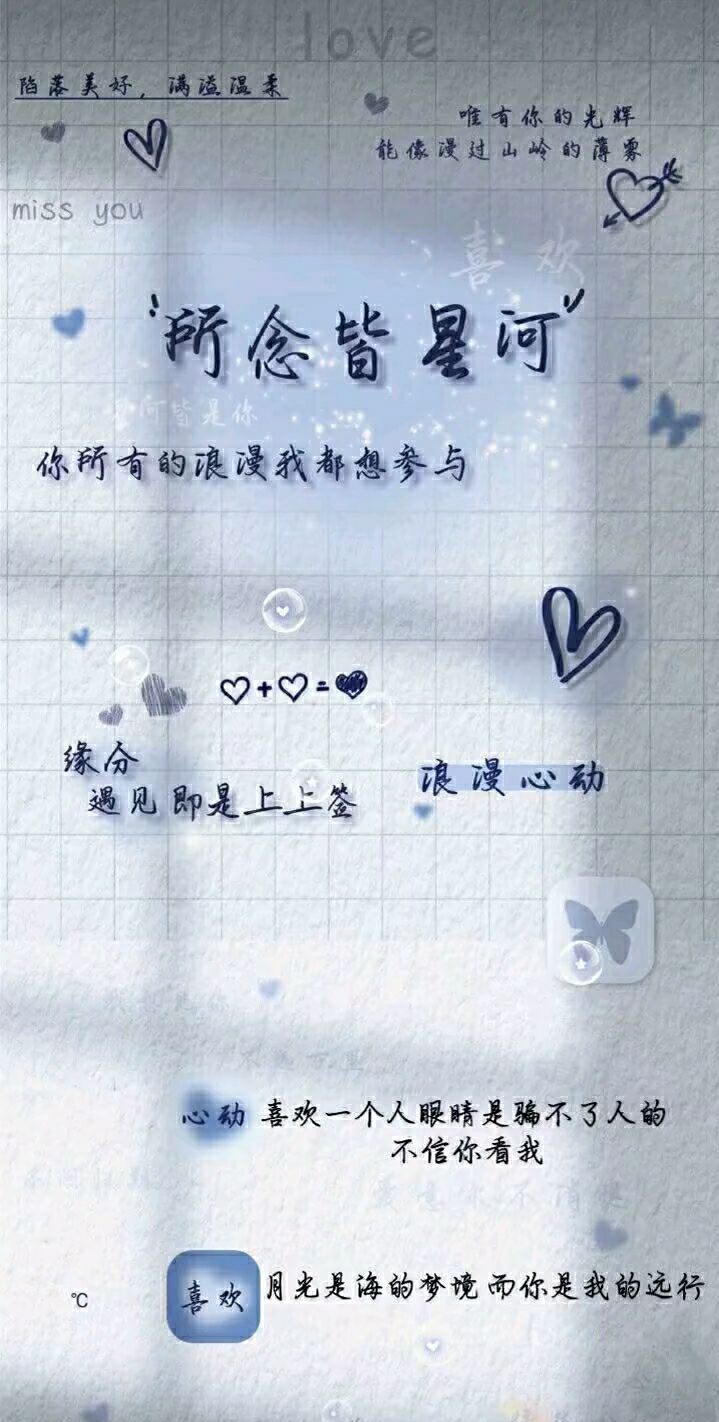 love
陷落美好，满溢温柔
唯有你的光辉
能像漫过山岭的薄雾
miss you
喜欢
"所念皆星河"
星河皆是你
你所有的浪漫我都想参与
♡+♡=♥
缘分
遇见即是上上签
浪漫心动
心动 喜欢一个人眼睛是骗不了人的
不信你看我
喜欢 月光是海的梦境而你是我的远行
℃